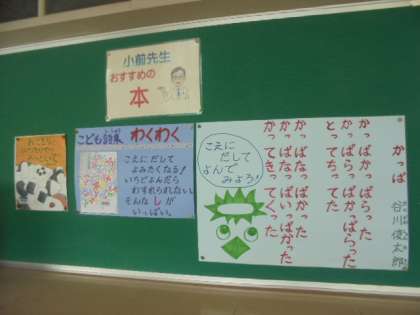 小前先生
おすすめの
本
こども詩集 わくわく
こえに だして
よみたくなる!
いちどよんだら
わすれられない。
そんな しが
いっぱい。
こえに
だして
よんで
みよう!
かっぱ
谷川俊太郎
かっぱかっぱらった
かっぱらっぱかっぱらった
とってちってた
かっぱなっぱかった
かっぱなっぱいっぱかった
かってきってくった